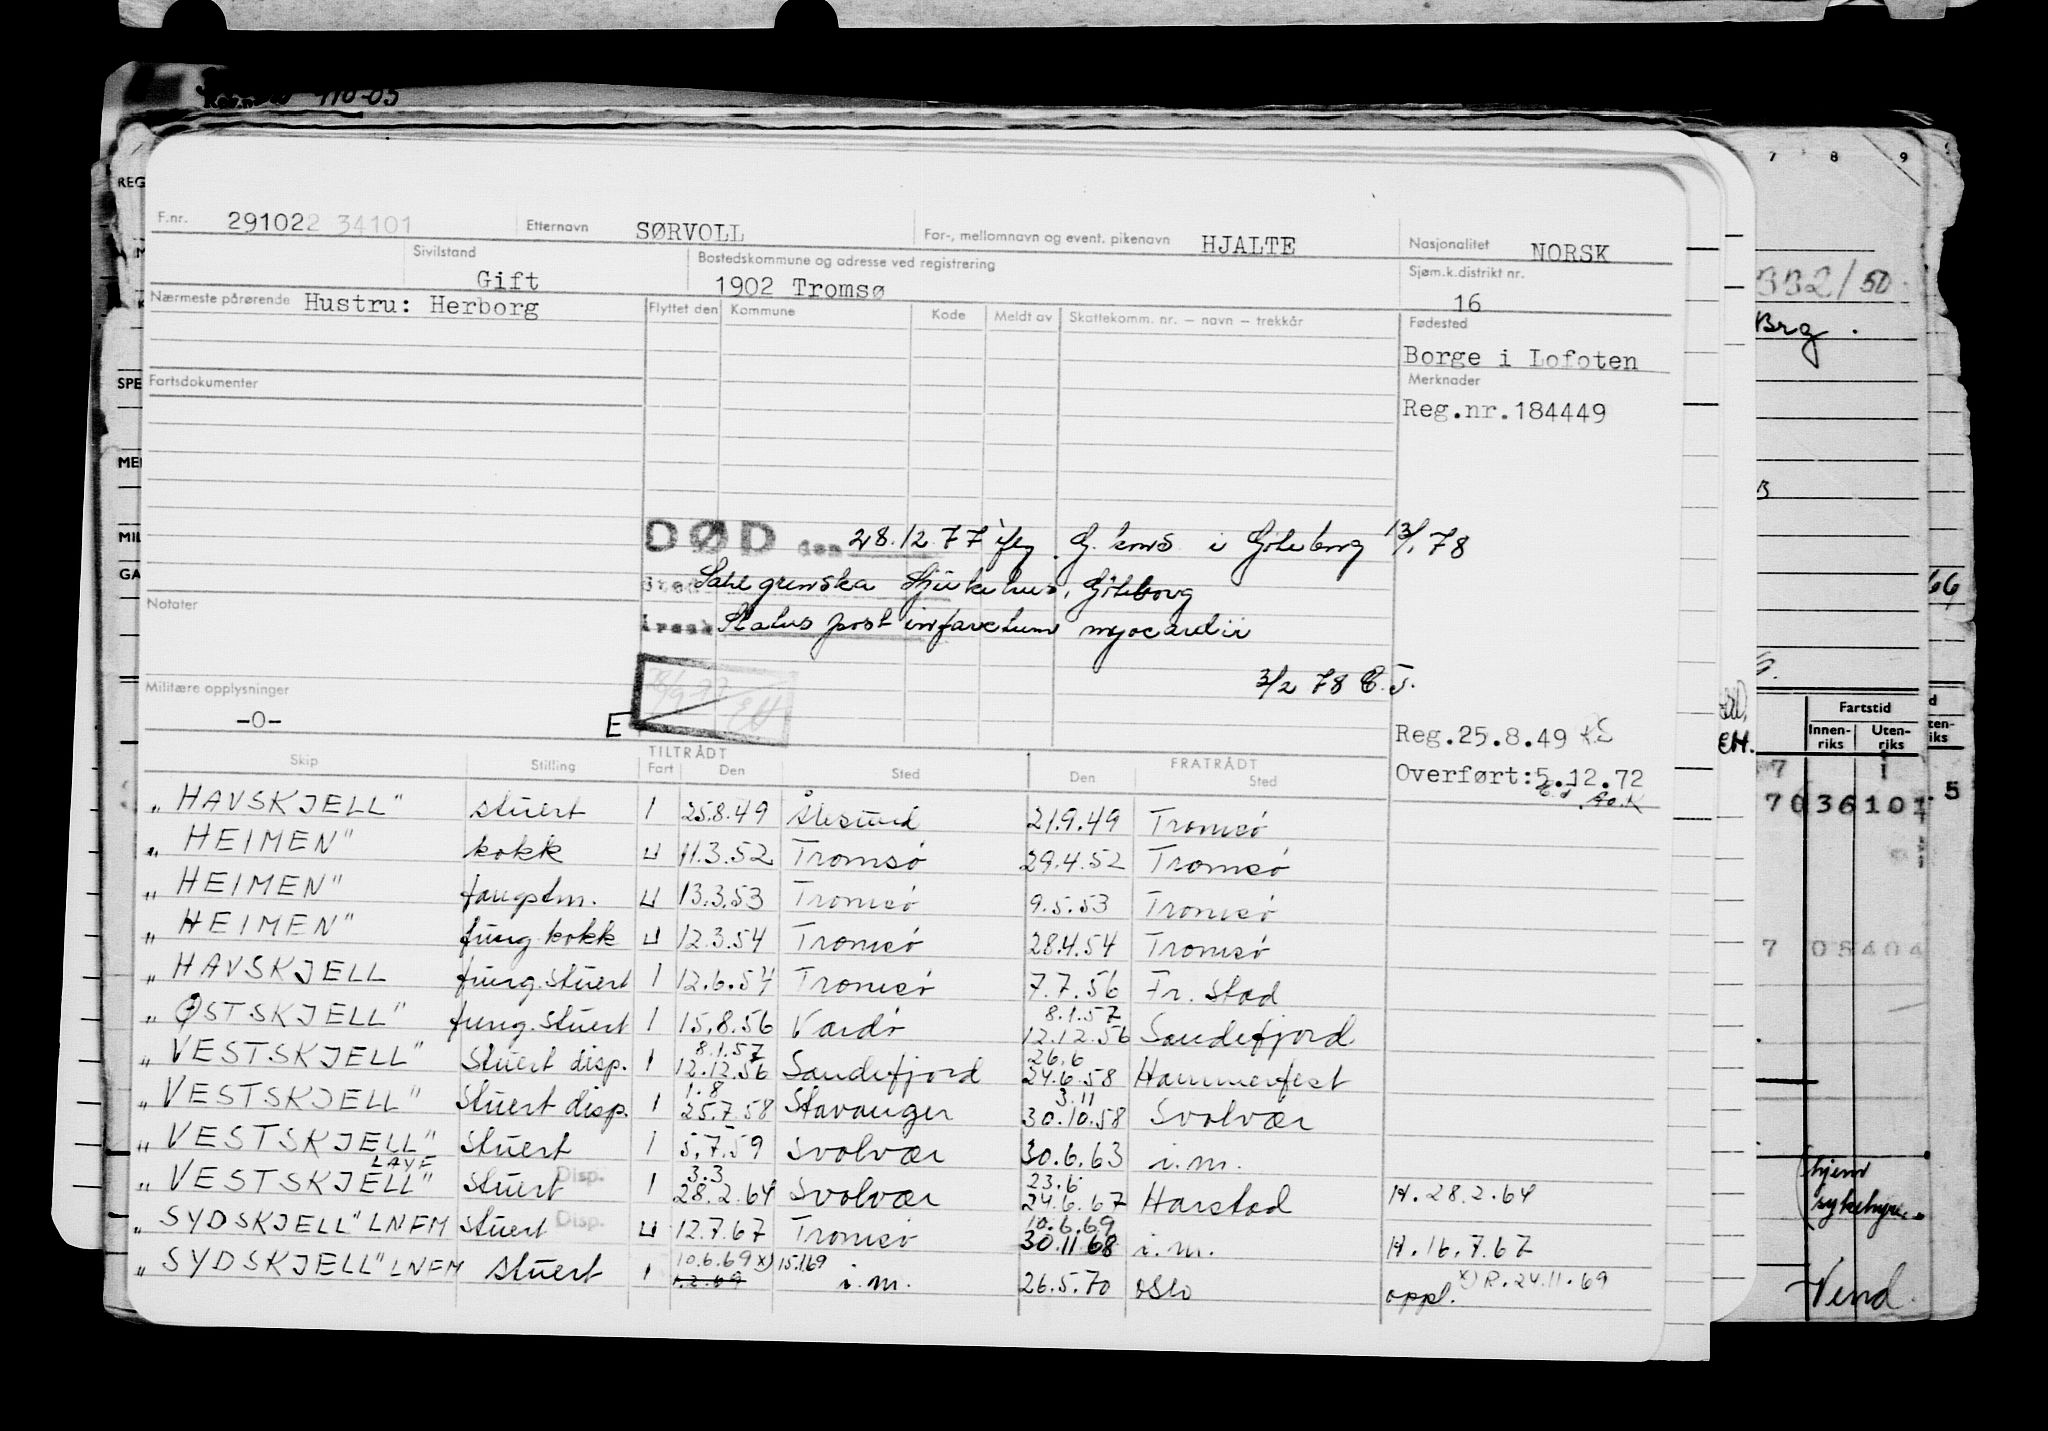 F.nr. 291022 34101 Etternavn SØRVOLL For-, mellomnavn og event. pikenavn HJALTE Nasjonalitet NORSK
Sivilstand Gift Bostedskommune og adresse ved registrering 1902 Tromsø Sjøm.k.distrikt nr. 16
Nærmeste pårørende Hustru: Herborg Flyttet den Kommune Kode Meldt av Skattekomm. nr. – navn – trekkår Fødested
Borge i Lofoten
Fartsdokumenter Merknader
Reg.nr.184449
DØD den 28.12.77 ifg. G. kons i Göteborg 13/1 78
Sahlgrenska Sjukehus, Göteborg
Notater
årsak Status post infarctum myocardii
3/2 78 E.J.
Militære opplysninger
-0-
E
Reg.25.8.49
Overført:5.12.72
Skip Stilling TILTRÅDT Fart Den Sted FRATRÅDT Den Sted
„HAVSKJELL" stuert I 25.8.49 Ålesund 21.9.49 Tromsø
„HEIMEN" kokk U 11.3.52 Tromsø 29.4.52 Tromsø
„HEIMEN" fangstm. U 13.3.53 Tromsø 9.5.53 Tromsø
„HEIMEN" fung. kokk U 12.3.54 Tromsø 28.4.54 Tromsø
„HAVSKJELL fung. stuert I 12.6.54 Tromsø 7.7.56 Fr. stad
„ØSTSKJELL" fung. stuert I 15.8.56 Vardø 8.1.57 12.12.56 Sandefjord
„VESTSKJELL" Stuert disp. I 8.1.57 12.12.56 Sandefjord 26.6 24.6.58 Hammerfest
„VESTSKJELL" Stuert disp. I 1.8 25.7.58 Stavanger 3.11 30.10.58 Svolvær
„VESTSKJELL" Stuert I 5.7.59 Svolvær 30.6.63 i.m.
„VESTSKJELL" LAYF Stuert Disp. I 3.3 28.2.64 Svolvær 23.6. 24.6.67 Harstad H. 28.2.64
„SYDSKJELL" LNFM Stuert Disp. U 12.7.67 Tromsø 10.6.69 30.11.68 i.m. H. 16.7.67
„SYDSKJELL" LNFM Stuert I 10.6.69 x) 1.2.69 15.1.69 i.m. 26.5.70 Oslo oppl. x) R. 24.11.69
REG
SPE
MIL
GA
7 8 9
332/50
Brg.
Fartstid
Innenriks Utenriks
EH.
7 036101
5
7 05404
hjem
Vend